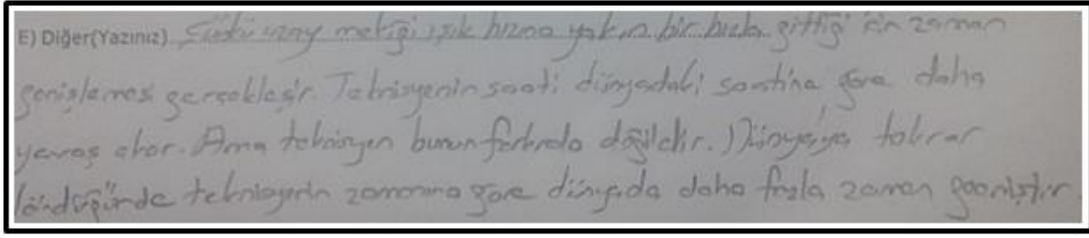 E) Diğer(Yazınız) Çünkü uzay mekiği ışık hızına yakın bir hızla gittiği için zaman
genişlemesi gerçekleşir. Teknisyenin saati dünyadaki saatine göre daha
yavaş akar. Ama teknisyen bunun farkında değildir. Dünyaya tekrar
döndüğünde teknisyenin zamanına göre dünyada daha fazla zaman geçmiştir.